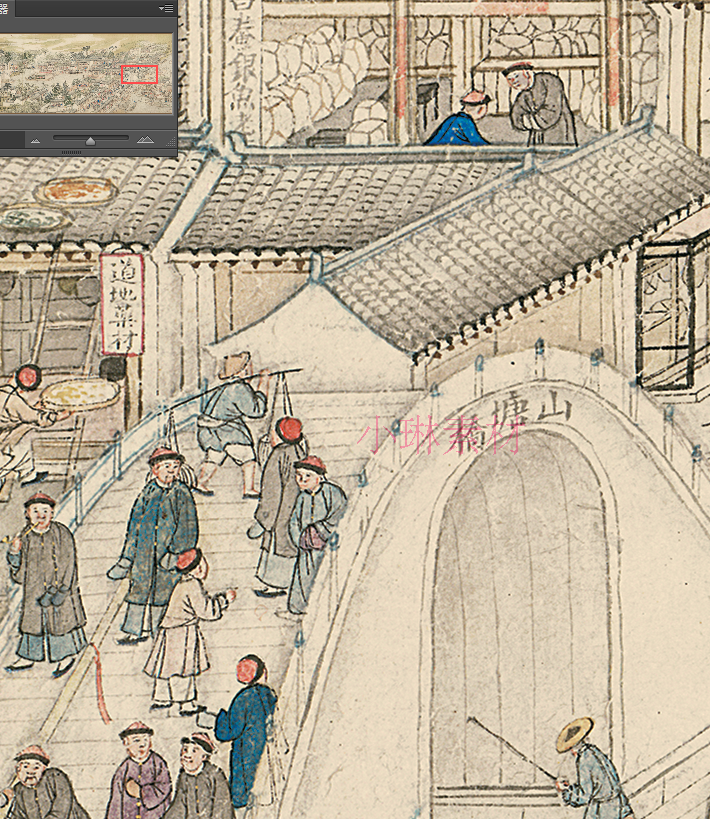 器
銀魚
道地藥材
山塘橋
小琳素材